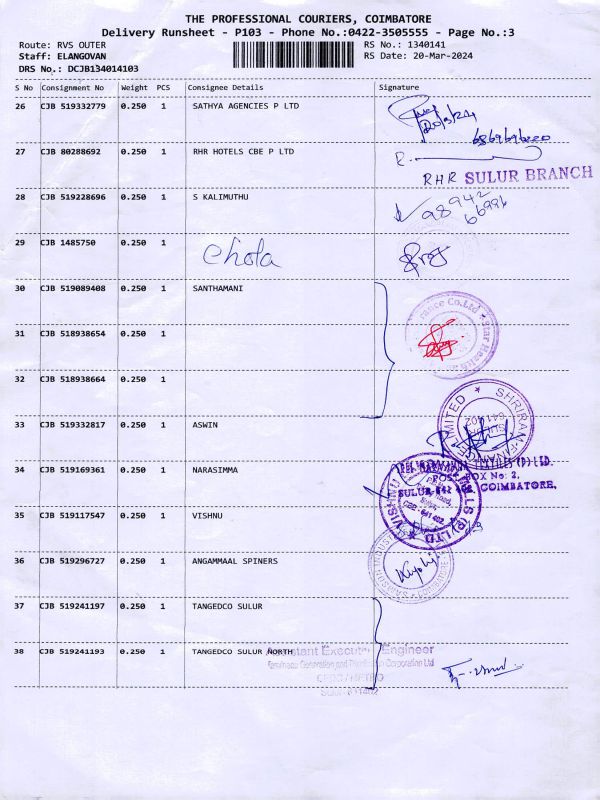 THE PROFESSIONAL COURIERS, COIMBATORE
Delivery Runsheet - P103 - Phone No.:0422-3505555 - Page No.:3
Route: RVS OUTER RS No.: 1340141
Staff: ELANGOVAN RS Date: 20-Mar-2024
DRS No.: DCJB134014103
S No Consignment No Weight PCS Consignee Details Signature
26 CJB 519332779 0.250 1 SATHYA AGENCIES P LTD
20/3/24
27 CJB 80288692 0.250 1 RHR HOTELS CBE P LTD
RHR SULUR BRANCH
28 CJB 519228696 0.250 1 S KALIMUTHU
98942
66996
29 CJB 1485750 0.250 1 Chola
30 CJB 519089408 0.250 1 SANTHAMANI
Co.Ltd * Star Health
31 CJB 518938654 0.250 1
32 CJB 518938664 0.250 1
SHRIRAM LIMITED
SULUR
641402
33 CJB 519332817 0.250 1 ASWIN
MILLS (P) LTD.
34 CJB 519169361 0.250 1 NARASIMMA
POST BOX No: 2,
SULUR-641 402 COIMBATORE.
35 CJB 519117547 0.250 1 VISHNU
VISHNU MILLS (P) LTD
Sulur
CBE - 641 402.
36 CJB 519296727 0.250 1 ANGAMMAAL SPINERS
COIMBATORE
37 CJB 519241197 0.250 1 TANGEDCO SULUR
38 CJB 519241193 0.250 1 TANGEDCO SULUR NORTH
Assistant Executive Engineer
Tamilnadu Generation and Distribution Corporation Ltd
CEDC / METRO
Sulur-641402